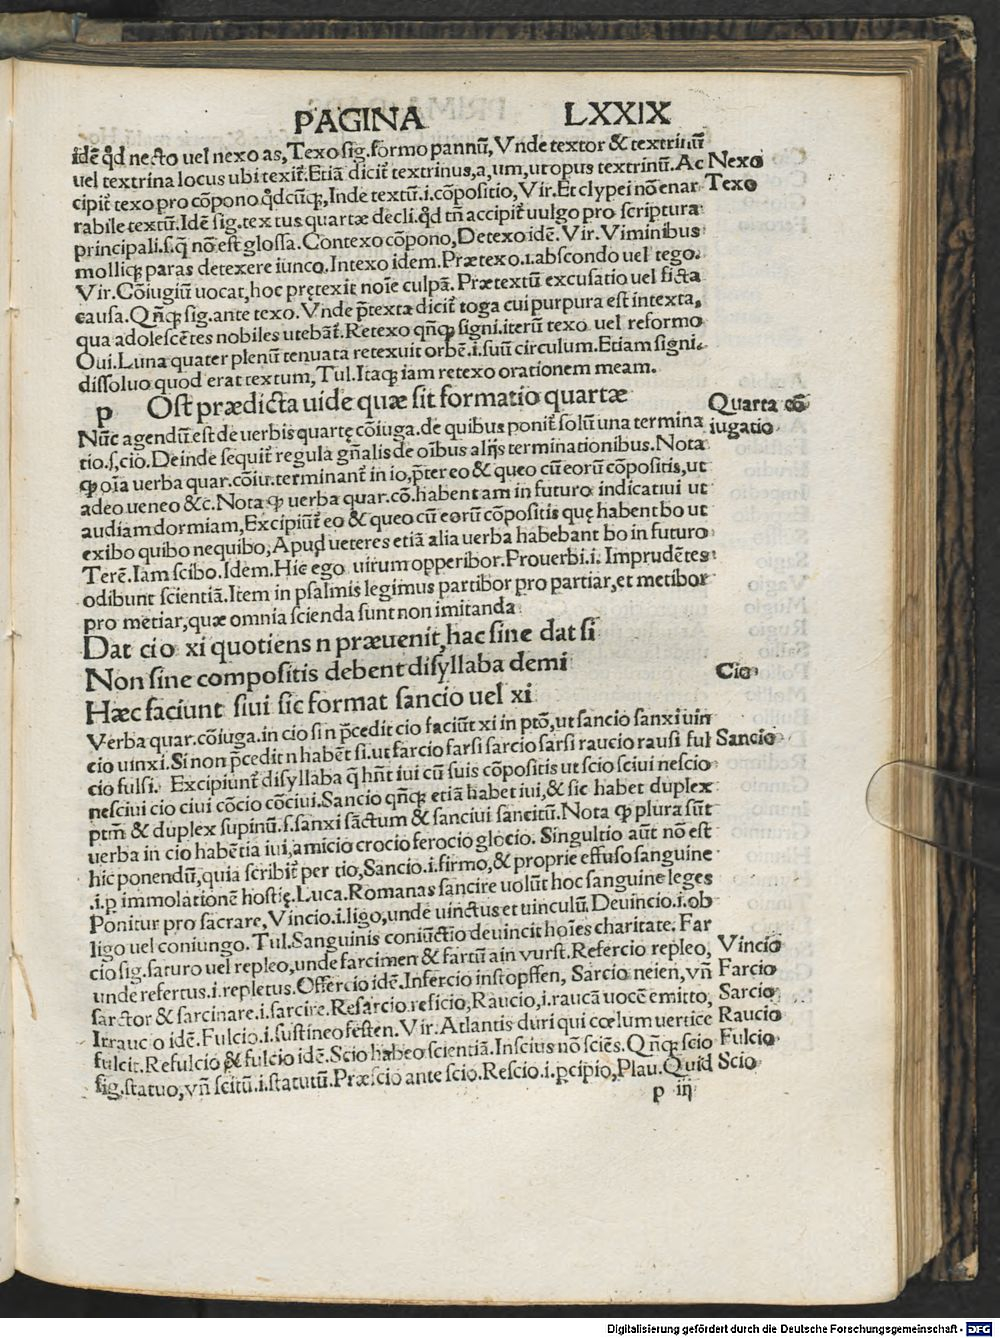 PAGINA LXXIX
idē qd necto uel nexo as, Texo sig. formo pannū, Vnde textor & textrinū
uel textrina locus ubi texit̄. Etiā dicit̄ textrinus, a, um, ut opus textrinū. Ac Nexo
cipit̄ texo pro cōpono qdcūq;, Inde textū .i. cōpositio, Vir. Et clypei nō enar Texo
rabile textū. Idē sig. textus quartæ decli. qd tn̄ accipit̄ uulgo pro scriptura
principali. s. q̄ nō est glossa. Contexo cōpono, Detexo idē. Vir. Viminibus
molliq; paras detexere iunco. Intexo idem. Prætexo .i. abscondo uel tego.
Vir. Cōiugiū uocat, hoc prętexit noīe culpā. Prætextū excusatio uel ficta
causa. Qn̄q; sig. ante texo. Vnde p̄texta dicit̄ toga cui purpura est intexta,
qua adolescētes nobiles utebāt̄. Retexo qn̄q; signi. iterū texo uel reformo
Oui. Luna quater plenū tenuata retexuit orbē .i. suū circulum. Etiam signi.
dissoluo quod erat textum, Tul. Itaq; iam retexo orationem meam.
p Ost prædicta uide quæ sit formatio quartæ Quarta cō
Nūc agendū est de uerbis quartę cōiuga. de quibus ponit̄ solū una termina iugatio
tio .s. cio. Deinde sequit̄ regula gn̄alis de oībus alijs terminationibus. Nota
ꝙ oīa uerba quar. cōiu. terminant̄ in io, p̄ter eo & queo cū eorū cōpositis, ut
adeo ueneo &c. Nota ꝙ uerba quar. cō. habent am in futuro indicatiui ut
audiam dormiam, Excipiūt̄ eo & queo cū eorū cōpositis quę habent bo ut
exibo quibo nequibo, Apud ueteres etiā alia uerba habebant bo in futuro
Terē. Iam scibo. Idem. Hic ego uirum opperibor. Prouerbi. i. Imprudētes
odibunt scientiā. Item in psalmis legimus partibor pro partiar, et metibor
pro metiar, quæ omnia scienda sunt non imitanda
Dat cio xi quotiens n præuenit, hac sine dat si
Non sine compositis debent disyllaba demi Cio
Hæc faciunt siui sic format sancio uel xi
Verba quar. cōiuga. in cio si n p̄cedit cio faciūt xi in ptō, ut sancio sanxi uin
cio uinxi. Si non p̄cedit n habēt si. ut farcio farsi sarcio sarsi raucio rausi ful Sancio
cio fulsi. Excipiunt̄ disyllaba q̄ hn̄t iui cū suis cōpositis ut scio sciui nescio
nesciui cio ciui cōcio cōciui. Sancio qn̄q; etiā habet iui, & sic habet duplex
ptm̄ & duplex supinū. s. sanxi sāctum & sanciui sancitū. Nota ꝙ plura sūt
uerba in cio habētia iui, amicio crocio ferocio glocio. Singultio aūt nō est
hic ponendū, quia scribit̄ per tio, Sancio .i. firmo, & proprie effuso sanguine
.i. p immolationē hostię. Luca. Romanas sancire uolūt hoc sanguine leges
Ponitur pro sacrare, Vincio .i. ligo, unde uinctus et uinculū. Deuincio .i. ob
ligo uel coniungo. Tul. Sanguinis coniūctio deuincit hoīes charitate. Far
cio sig. saturo uel repleo, unde farcimen & fartū ain vurst. Refercio repleo, Vincio
unde refertus .i. repletus. Offercio idē. Infercio instopffen, Sarcio neien, vn̄ Farcio
sarctor & sarcinare .i. sarcire. Resarcio reficio, Raucio, i. raucā uocē emitto, Sarcio
Irraucio idē. Fulcio .i. sustineo festen. Vir. Atlantis duri qui cœlum uertice Raucio
fulcit. Refulcio & fulcio idē. Scio habeo scientiā. Inscius nō sciēs. Qn̄q; scio Fulcio
sig. statuo, vn̄ scitū .i. statutū. Præscio ante scio. Rescio .i. pcipio, Plau. Quid Scio
p iij
Digitalisierung gefördert durch die Deutsche Forschungsgemeinschaft - DFG